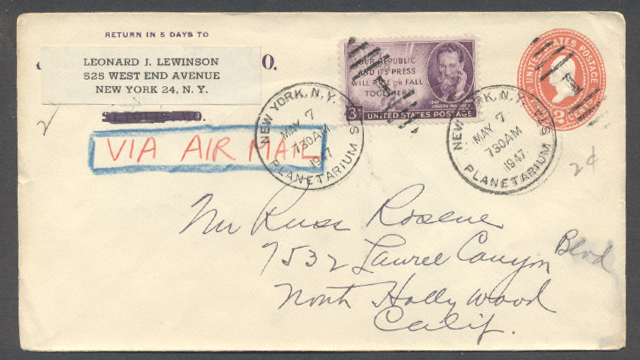 RETURN IN 5 DAYS TO
LEONARD J. LEWINSON
525 WEST END AVENUE
NEW YORK 24, N. Y.
O.
VIA AIR MAIL
OUR REPUBLIC
AND ITS PRESS
WILL RISE OR FALL
TOGETHER
3¢
UNITED STATES POSTAGE
NEW YORK, N.Y.
MAY 7
730AM
1947
PLANETARIUM STA
NEW YORK, N.Y.
MAY 7
730AM
1947
PLANETARIUM
UNITED STATES POSTAGE
2
2¢
Mr Russ Rosene
7532 Laurel Canyon Blvd
North Hollywood
Calif.